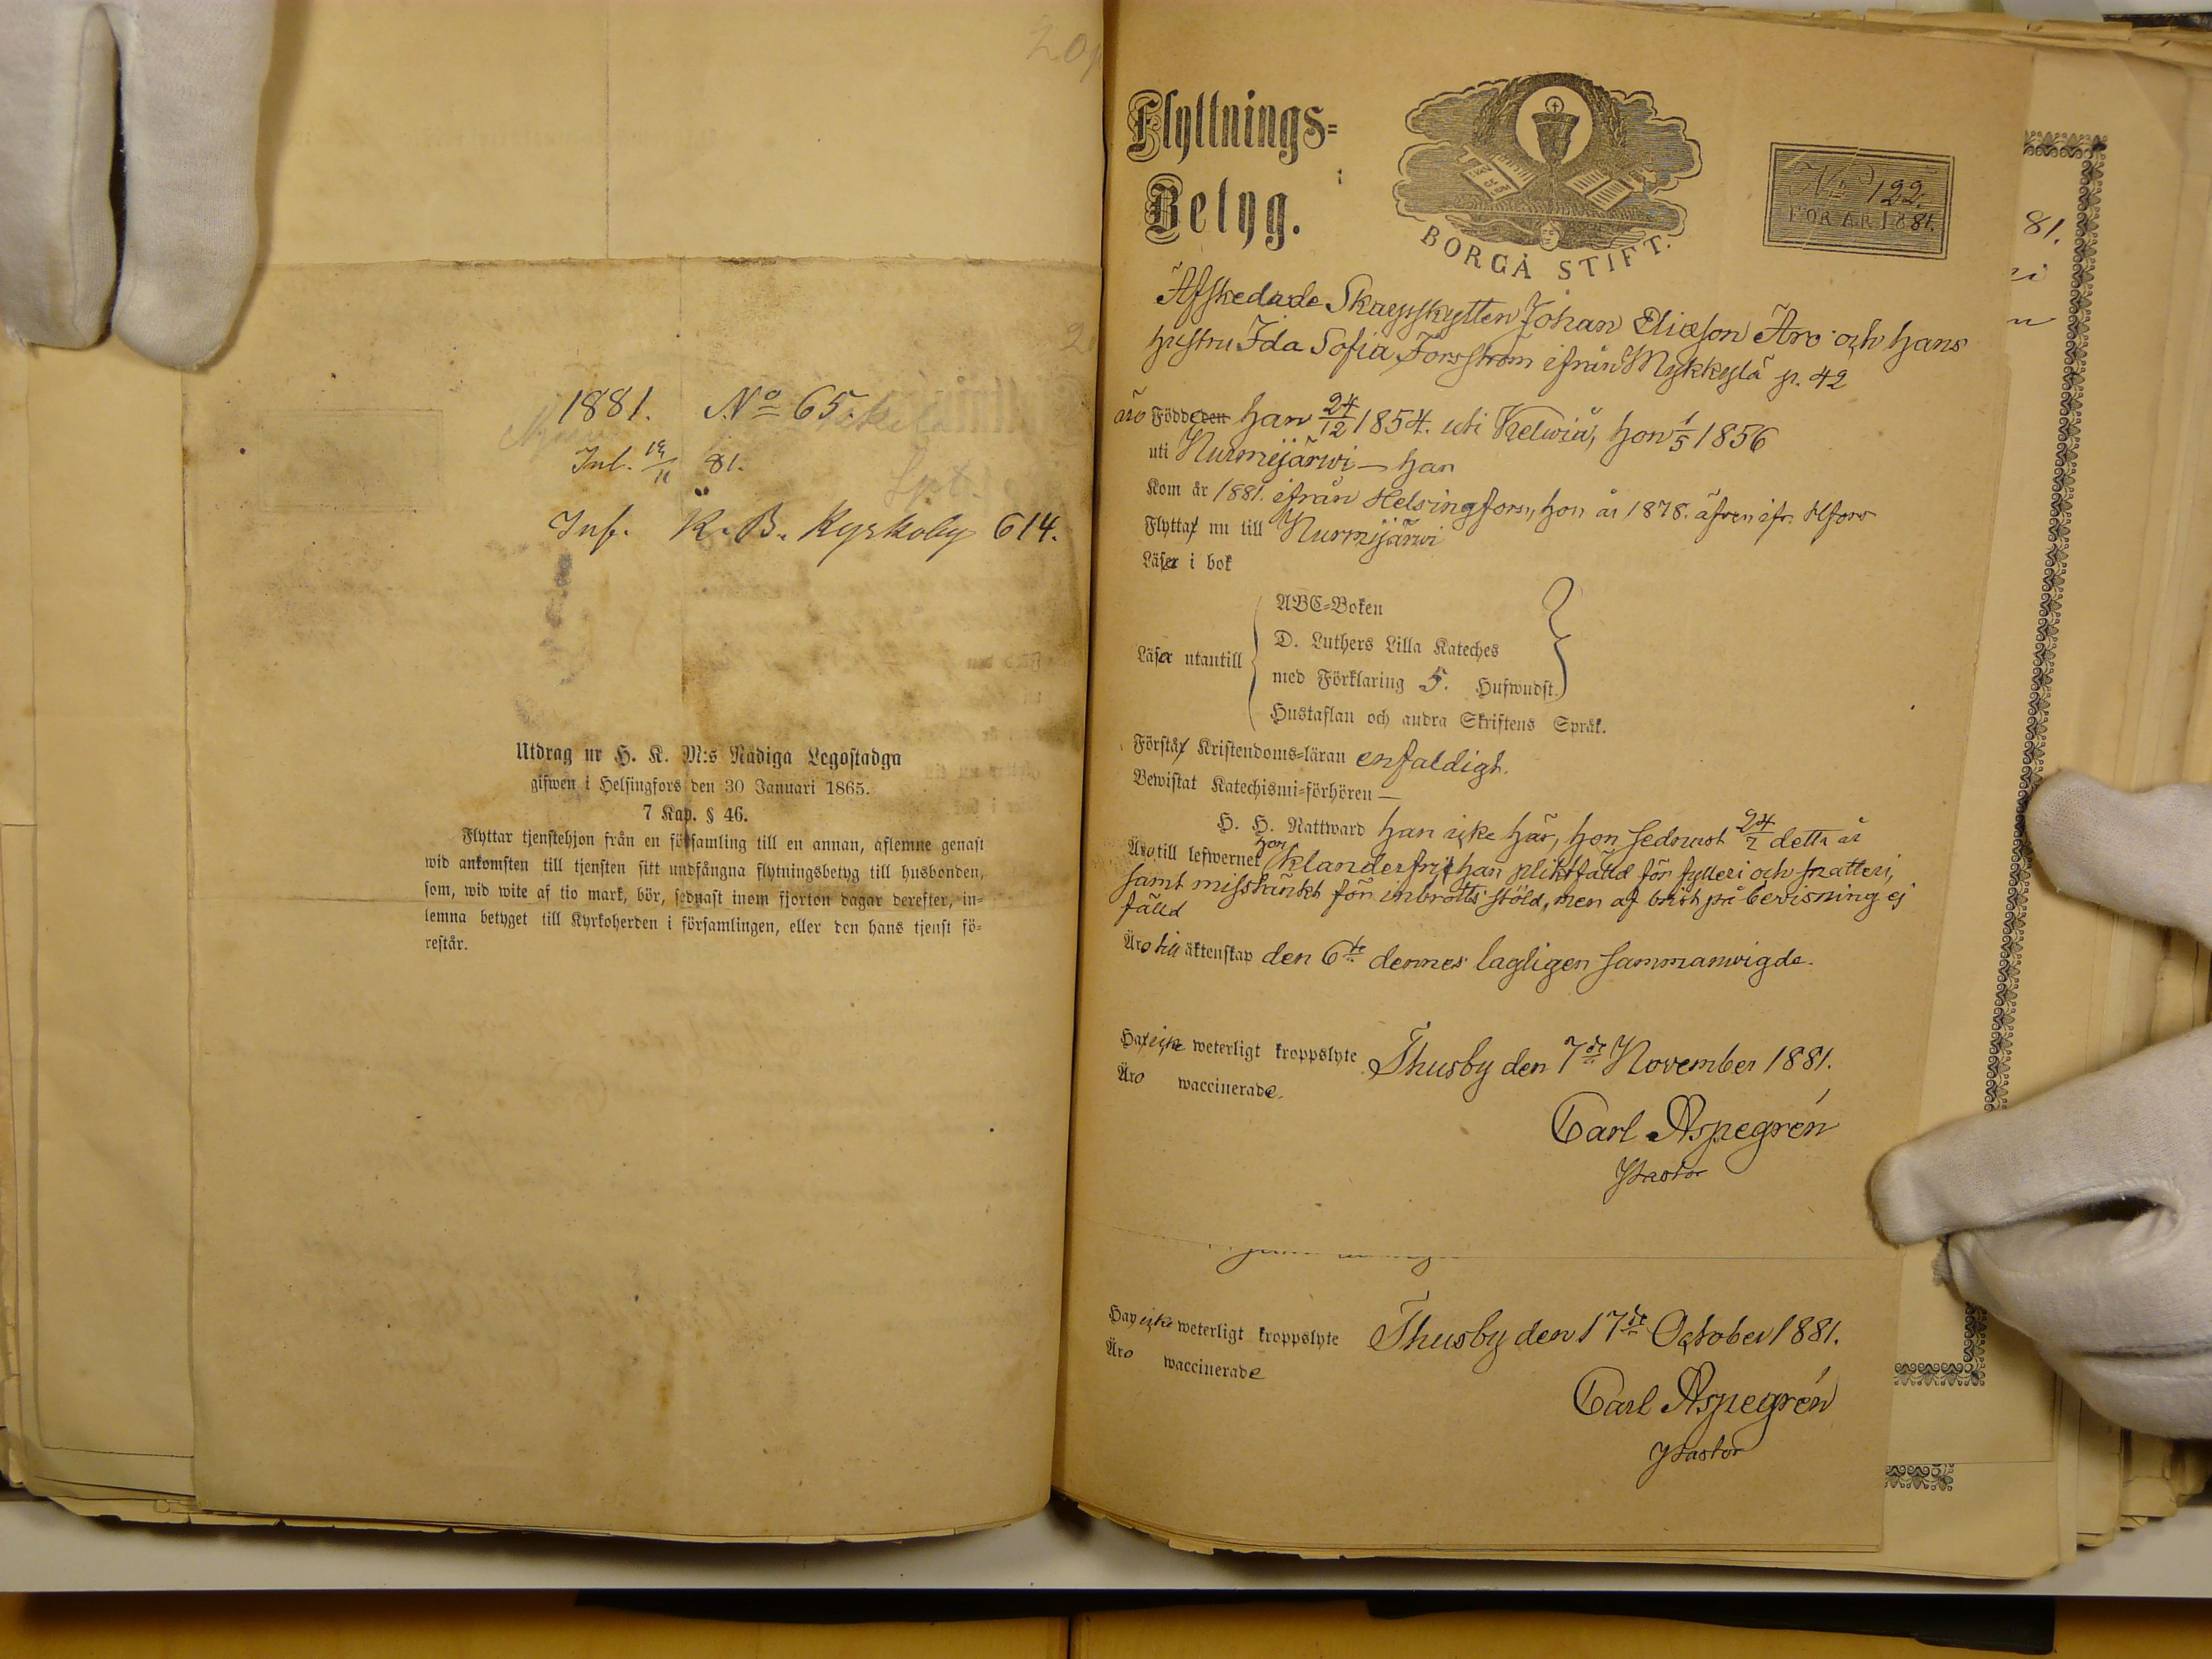 1881. No 65.
Inl. 19/11 81.
Inf. K. B. Kyrkoby 614.
Utdrag ur H. K. M:s Nådiga Legostadga
gifwen i Helsingfors den 30 Januari 1865.
7 Kap. § 46.
Flyttar tjenstehjon från en församling till en annan, aflemne genast
wid ankomsten till tjensten sitt undfångna flytningsbetyg till husbonden,
som, wid wite af tio mark, bör, sednast inom fjorton dagar derefter, in-
lemna betyget till Kyrkoherden i församlingen, eller den hans tjenst fö-
restår.
Flyttnings-
Betyg.
EVAN GE LIUM
BORGÅ STIFT.
No 122.
FÖR ÅR 1881.
Afskedade Skarpskytten Johan Eliasson Aro och hans
hustru Ida Sofia Forsström ifrån Mykkylä p. 42
äro Födde den han 24/12 1854. uti Kelwiå, hon 1/5 1856
uti Nurmijärwi — han
Kom år 1881. ifrån Helsingfors, hon år 1878. äfven ifr. Hfors
Flytta nu till Nurmijärwi
Läser i bok
Läser utantill
ABC-Boken
D. Luthers Lilla Kateches
med Förklaring 5. Hufwudst.
Hustaflan och andra Skriftens Språk.
Förstår Kristendoms-läran enfaldigt.
Bewistat Katechismi-förhören —
H. H. Nattward han icke här, hon sednast 24/7 detta år
Äro till lefwernet hon klanderfri, han pliktfälld för fylleri och snatteri,
samt misstänkt för inbrotts stöld, men af brist på bevisning ej
fälld
Äro till äktenskap den 6te dennes lagligen sammanvigde.
Ha icke weterligt kroppslyte
Thusby den 7de November 1881.
Äro waccinerade.
Carl Aspegrén
Pastor
Ha icke weterligt kroppslyte
Thusby den 17de October 1881.
Äro waccinerade
Carl Aspegrén
Pastor
81.